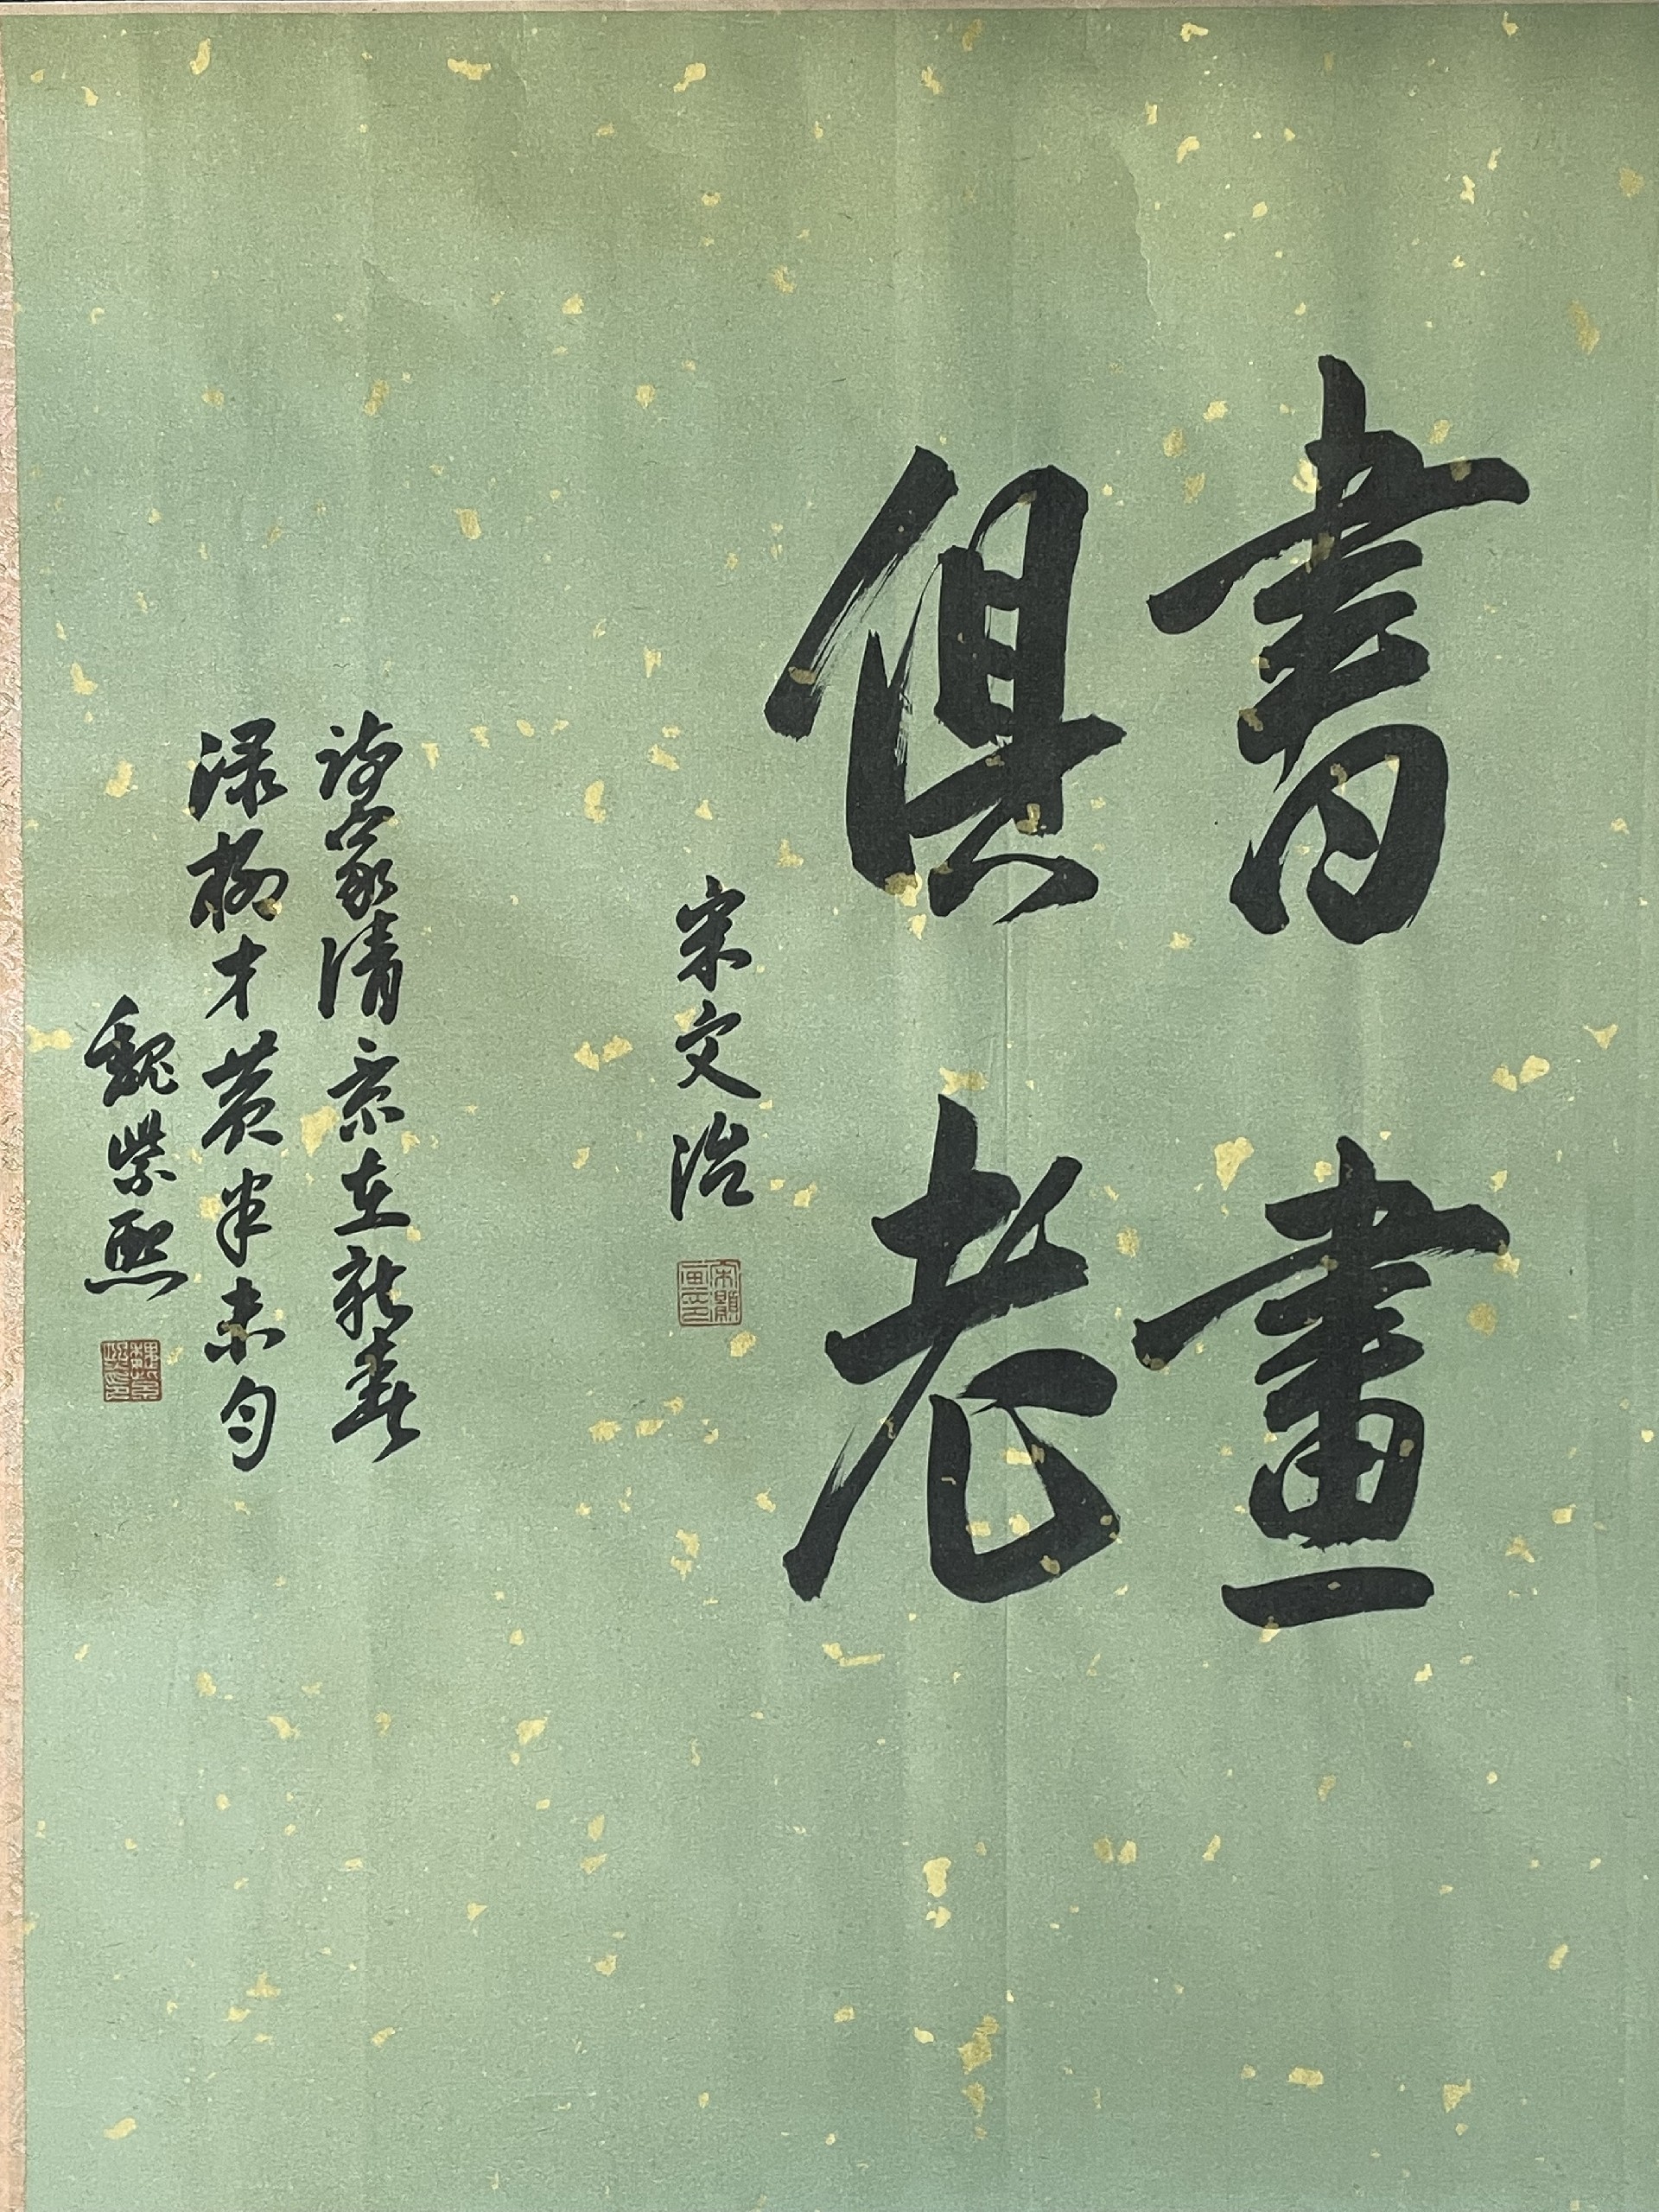 書畫
俱老
宋文治
詩家清景在新春
綠柳才黃半未勻
魏紫熙